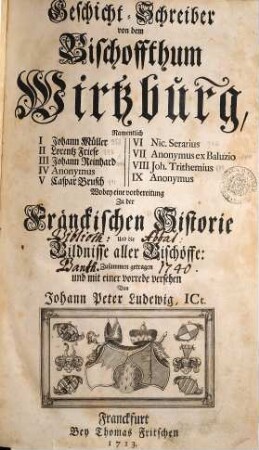 Geschicht-Schreiber
von dem
Bischoffthum
Wirtzburg,
Namentlich
I Johann Müller
II Lorentz Friese
III Johann Reinhard
IV Anonymus
V Caspar Brusch
VI Nic. Serarius
VII Anonymus ex Baluzio
VIII Joh. Trithemius
IX Anonymus
Wobey eine vorbereitung
Zu der
Fränckischen Historie
Und die
Bildnisse aller Bischöffe:
Zusammen getragen
1740.
und mit einer vorrede versehen
Von
Johann Peter Ludewig, ICt.
Franckfurt
Bey Thomas Fritschen
1713.